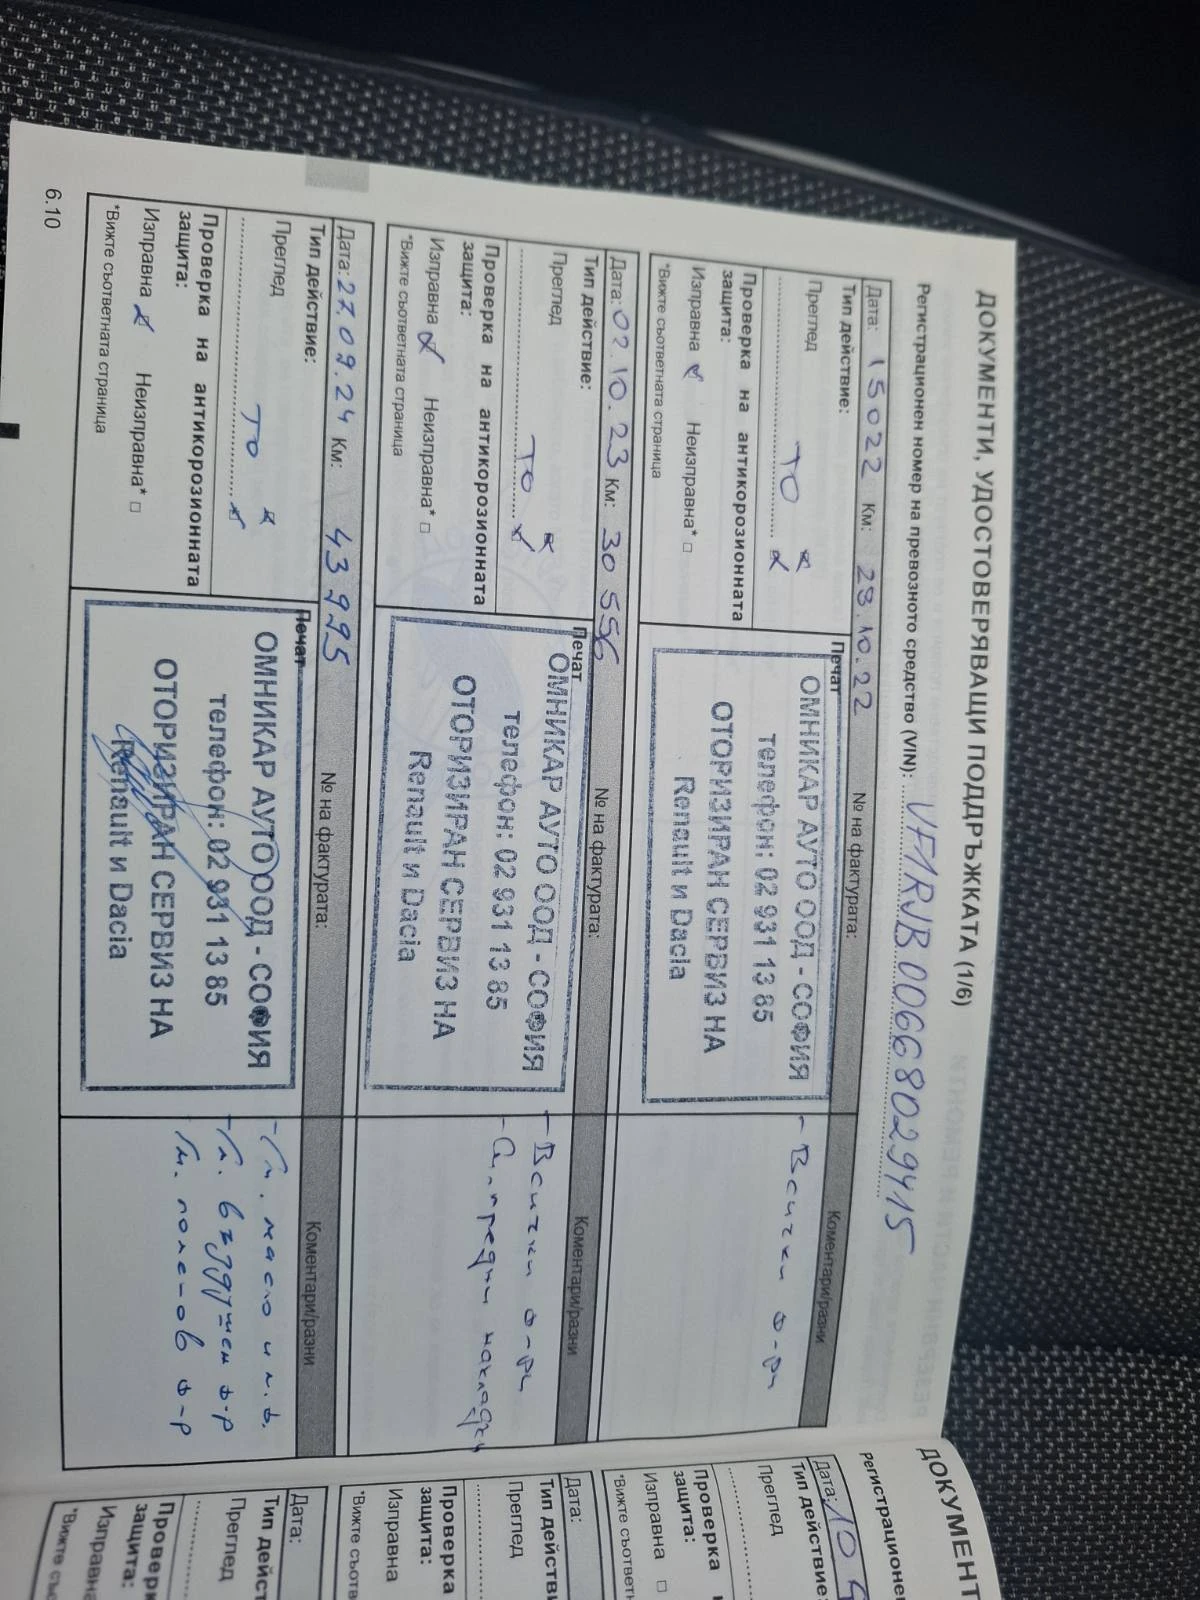 ДОКУМЕНТИ, УДОСТОВЕРЯВАЩИ ПОДДРЪЖКАТА (1/6)
Регистрационен номер на превозното средство (VIN): VF1RJB00668029415
Дата: 15022 Км: 28.10.22 № на фактурата: Коментари/разни
Тип действие:
Преглед
ТО
Проверка на антикорозионната
защита:
Изправна Неизправна* □
*Вижте съответната страница
Печат
ОМНИКАР АУТО ООД - СОФИЯ
телефон: 02 931 13 85
ОТОРИЗИРАН СЕРВИЗ НА
Renault и Dacia
- Всички ф-ри
Дата: 02.10.23 Км: 30 556 № на фактурата: Коментари/разни
Тип действие:
Преглед
ТО
Проверка на антикорозионната
защита:
Изправна Неизправна* □
*Вижте съответната страница
Печат
ОМНИКАР АУТО ООД - СОФИЯ
телефон: 02 931 13 85
ОТОРИЗИРАН СЕРВИЗ НА
Renault и Dacia
- Всички ф-ри
предни накладки
Дата: 27.09.24 Км: 43 995 № на фактурата: Коментари/разни
Тип действие:
Преглед
ТО
Проверка на антикорозионната
защита:
Изправна Неизправна* □
*Вижте съответната страница
Печат
ОМНИКАР АУТО ООД - СОФИЯ
телефон: 02 931 13 85
ОТОРИЗИРАН СЕРВИЗ НА
Renault и Dacia
масло и м.ф.
въздушен ф-р
поленов ф-р
6.10
ДОКУМЕНТ
Регистрационе
Дата: 10
Тип действие:
Преглед
Проверка
защита:
Изправна □
*Вижте съответ
Дата:
Тип действи
Преглед
Проверка
защита:
Изправна
*Вижте съотв
Дата:
Тип дейст
Преглед
Проверк
защита:
Изправна
*Вижте съ